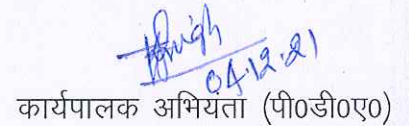 04.12.21
कार्यपालक अभियंता (पी0डी0ए0)